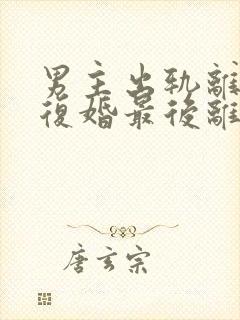 男主出軌離
復婚最後離
唐玄宗